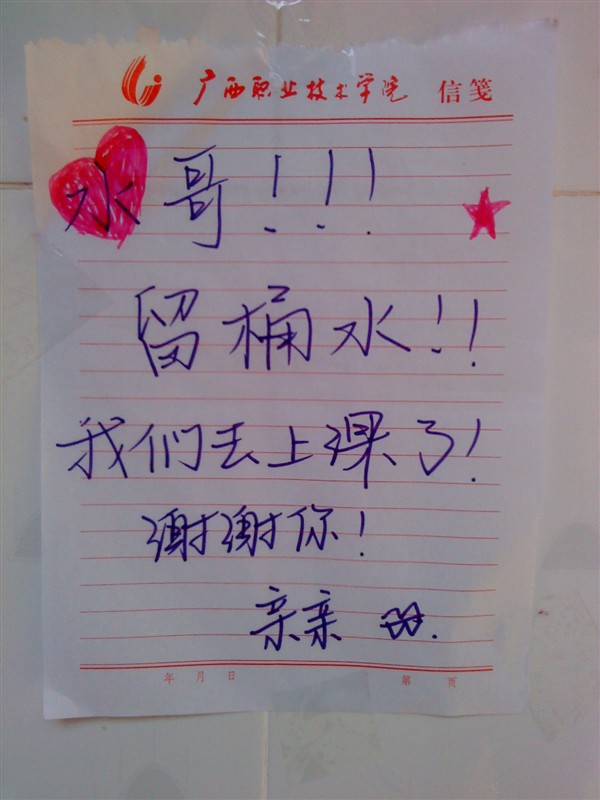 广西职业技术学院 信笺
水哥！！！
留桶水！！
我们去上课了！
谢谢你！
亲亲
年 月 日 第 页